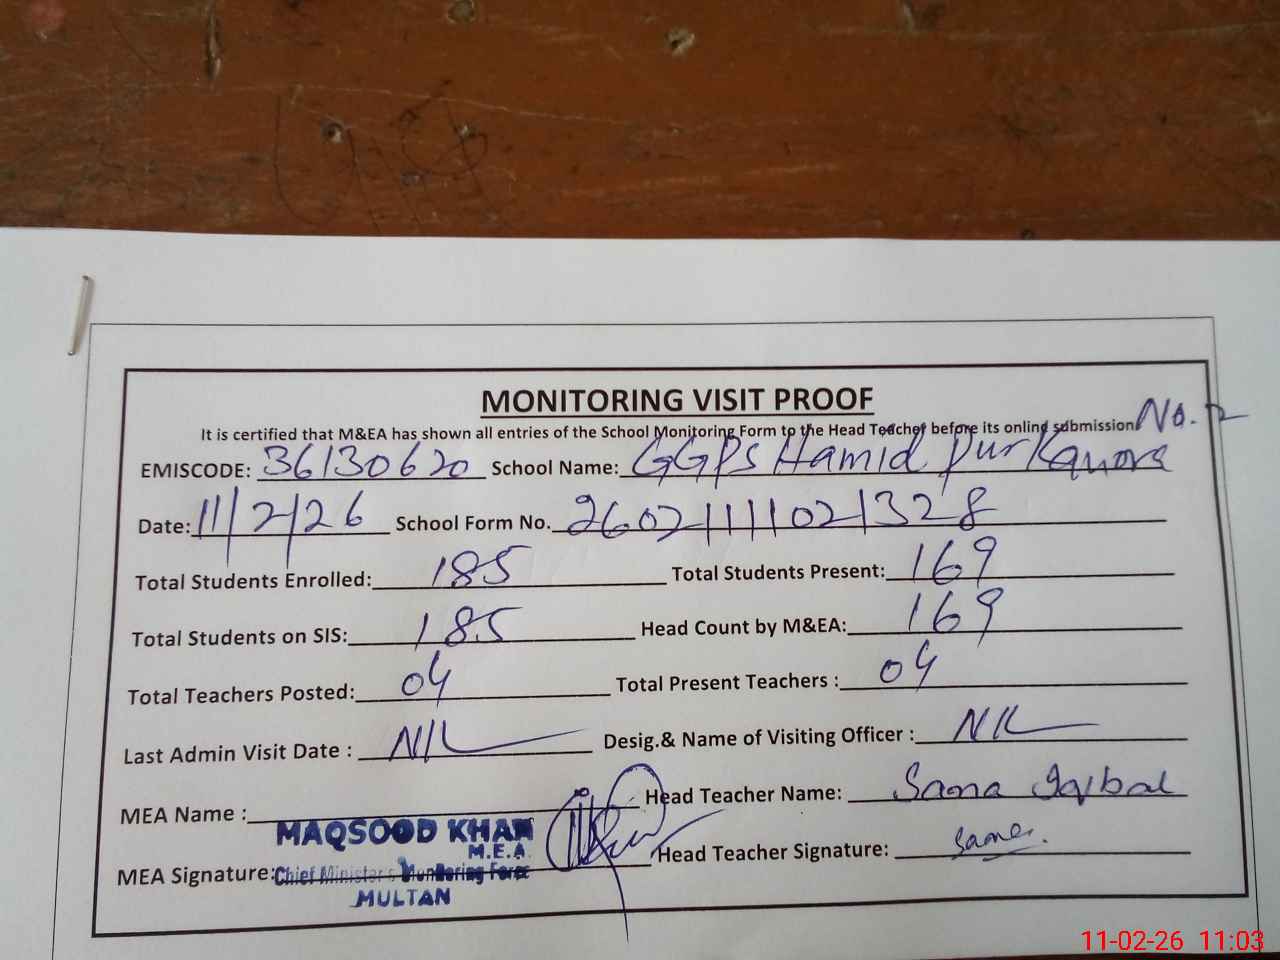 MONITORING VISIT PROOF
It is certified that M&EA has shown all entries of the School Monitoring Form to the Head Teacher before its online submission.
EMISCODE: 36130620 School Name: GGPS Hamid Pur Kanora No. 2
Date: 11/2/26 School Form No. 26021111021328
Total Students Enrolled: 185 Total Students Present: 169
Total Students on SIS: 185 Head Count by M&EA: 169
Total Teachers Posted: 04 Total Present Teachers : 04
Last Admin Visit Date : NIL Desig.& Name of Visiting Officer : NIL
MEA Name : Head Teacher Name: Sana Iqbal
MAQSOOD KHAN
M.E.A.
MEA Signature: Chief Minister's Monitoring Force Head Teacher Signature: Sana
MULTAN
11-02-26 11:03